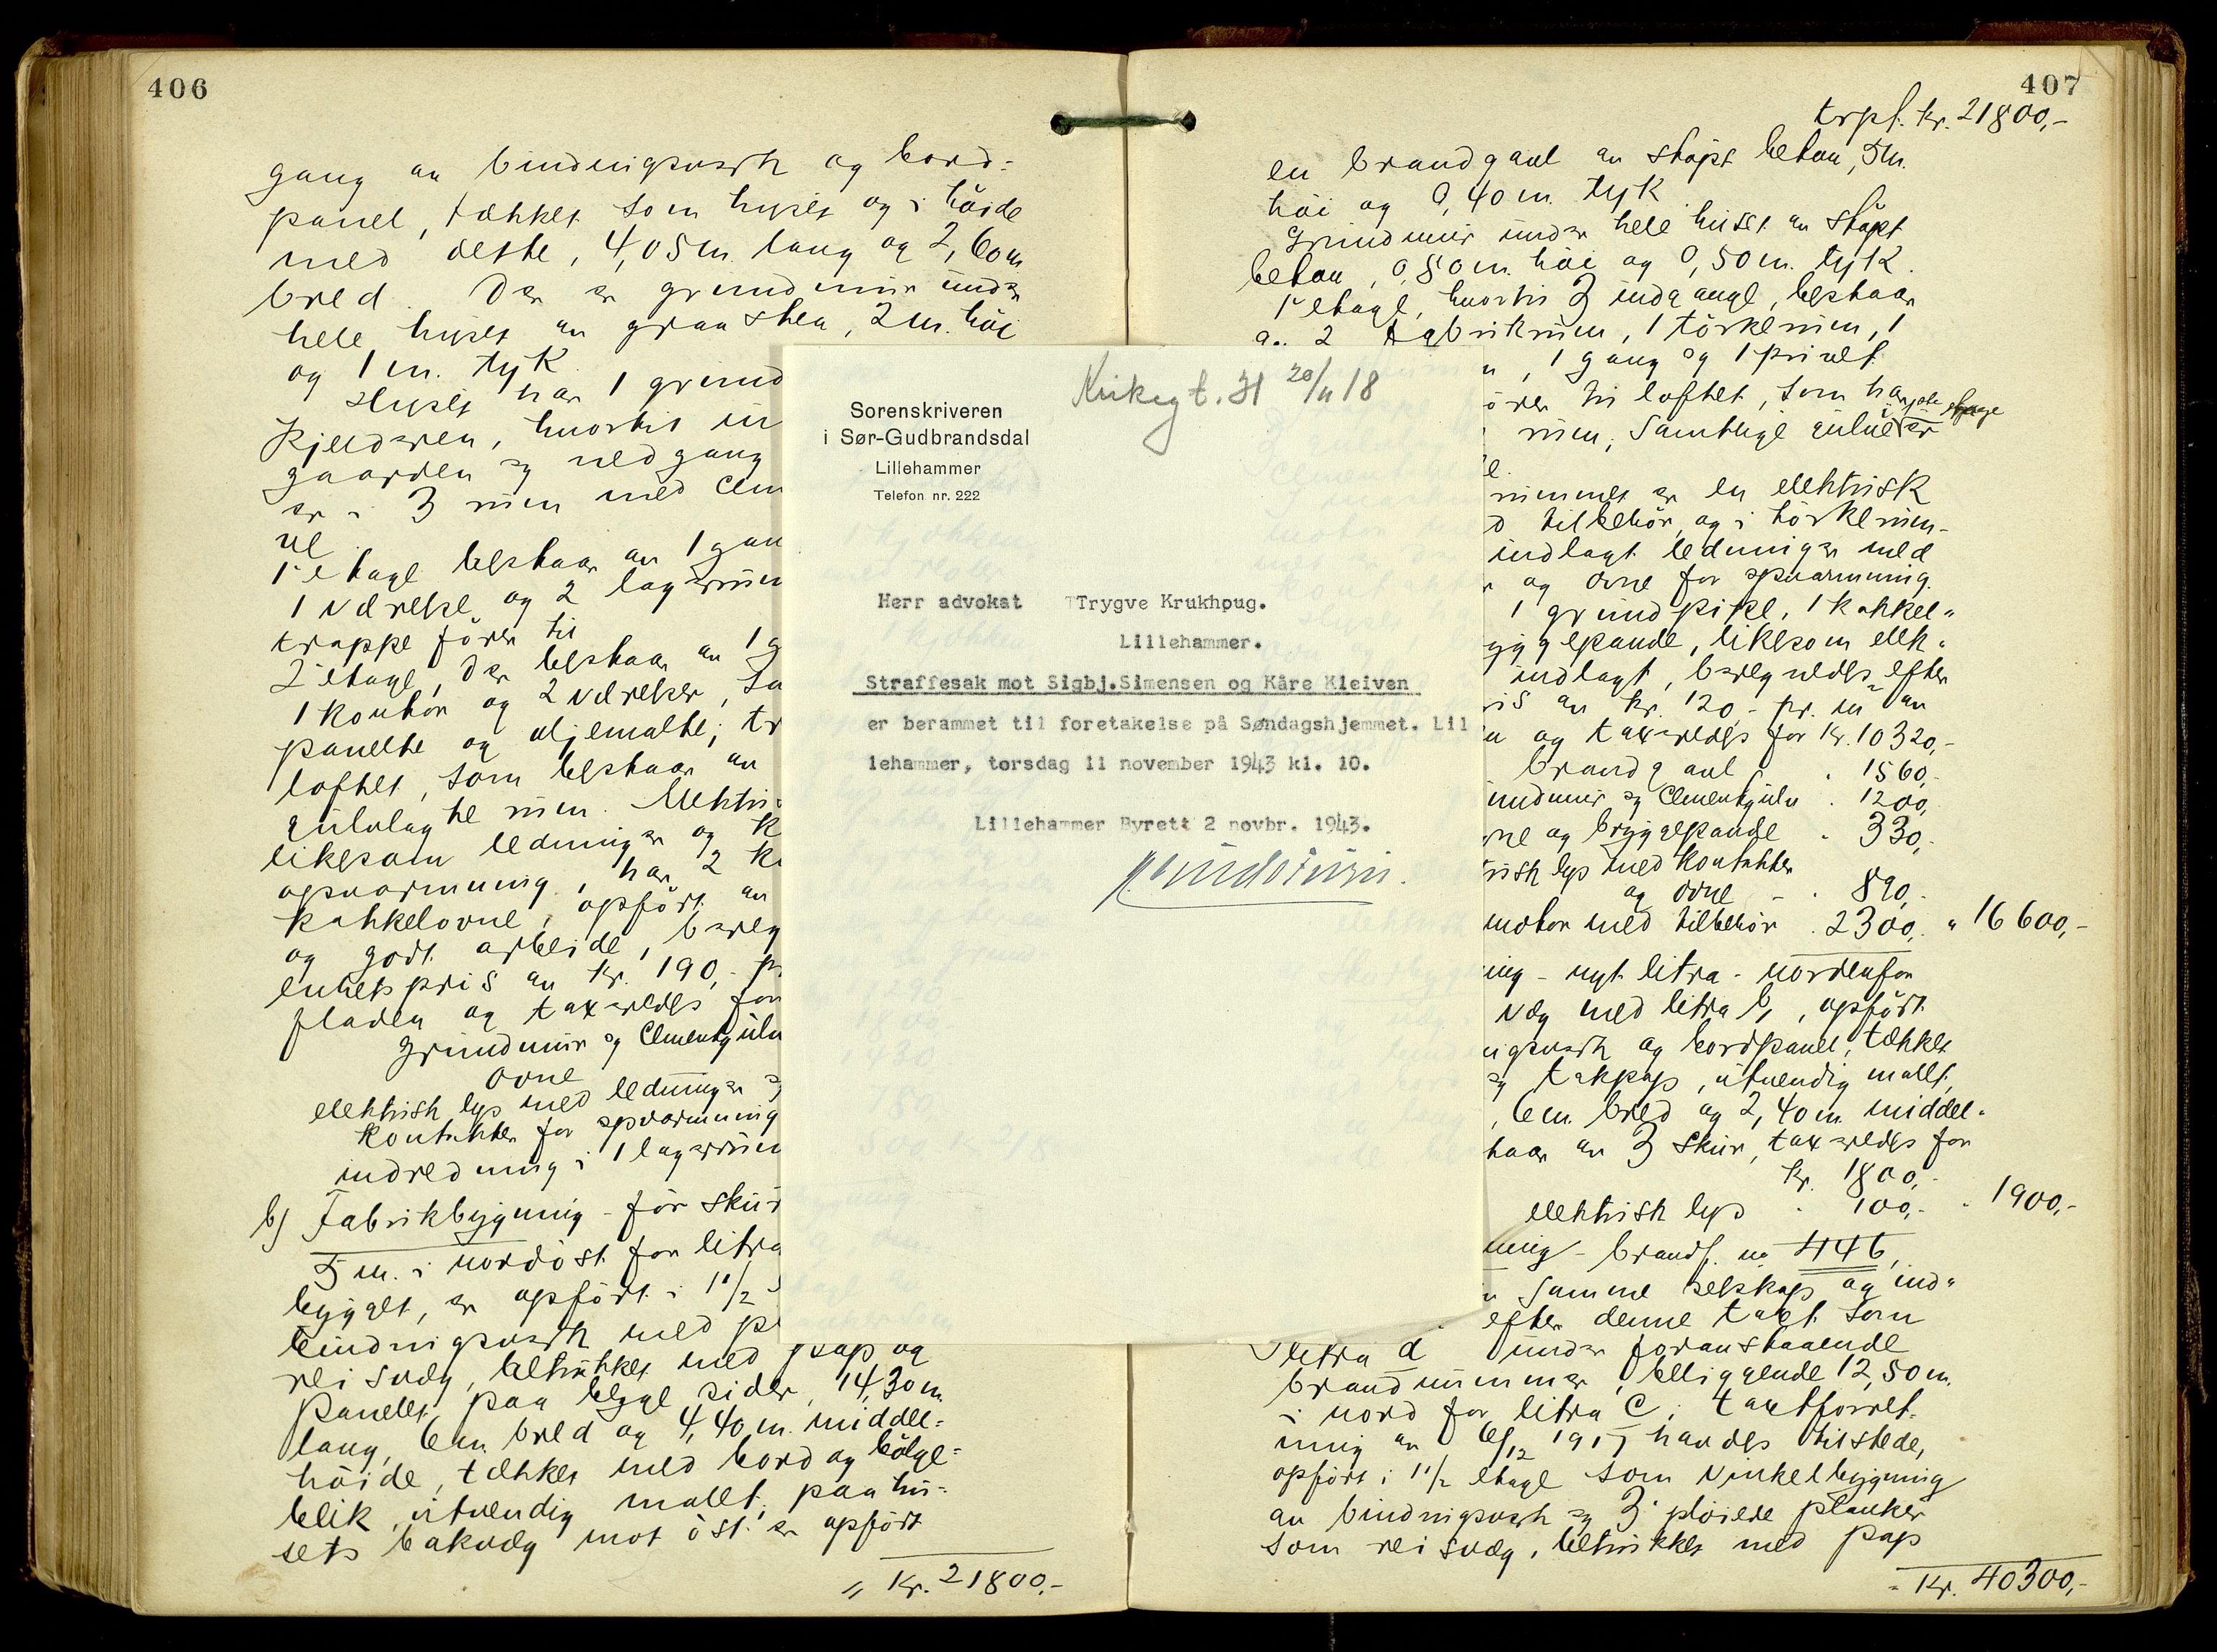 406
gang av bindingsverk og bord-
panel, tækket som huset og i høide
med dette, 4,05 m. lang og 2,60 m.
bred. Der er grundmur under
hele huset av graasten, 2 m. høi
og 1 m. tyk.
Huset har 1 grund
Kjelderen, hvortil in
gaarden og nedgang
er i 3 rum med Cem
ve
1ste etage bestaar av 1 gan
1 værelse og 2 lagerrum
trappe fører til
2 etage, der bestaar av 1 g
1 kontor og 2 værelser, sa
panelte og oljemalte; tr
loftet, som bestaar av
gulvlagte rum. Elektri
likesom ledninger og k
opvarmning, har 2 k
kakkelovne, opført av
og godt arbeide, bereg
enhetspris av kr. 190,- p
fladen og taxeredes for
Grundmur og Cementgulv
Ovne
elektrisk lys med ledninger og
kontakter for opvarmning
indredning i 1 lagerrum
b) Fabrikbygning - før skur
5 m. i nordøst for litra
bygget, er opført i 1 1/2
bindingsverk med p
reisvæg, betrukket med pap og
panelet paa begge sider, 14,30 m.
lang, 6 m. bred og 4,40 m. middel-
høide, tækket med bord og bølge-
blik, utvendig malt; paa hu-
sets bakvæg mot øst er opført
" Kr. 21800,-
407
trpf. kr. 21800,-
en brandgavl av støpt beton, 5 m.
høi og 0,40 m. tyk.
Grundmur under hele huset av støpt
beton, 0,80 m. høi og 0,50 m. tyk.
1ste etage, hvortil 3 indgange, bestaar
av 2 Fabrikrum, 1 tørkerum, 1
, 1 gang og 1 privet
ører til loftet, som har
rum; samtlige gulve er
rummet er en elektrisk
d tilbehør, og i tørkerum-
indlagt ledninger med
r og ovne for opvarmning.
1 grundpipe, 1 kakkel-
yggepande, likesom elek-
indlagt, beregnedes efter
ris av kr. 120,- pr. m² av
n og taxeredes for kr. 10320,-
brandgavl " 1560,-
undmur og Cementgulv " 1200,-
vne og bryggepande " 330,-
risk lys med kontakter
og ovne - " 890,-
motor med tilbehør " 2300,- " 16600,-
ning - nyt litra - nordenfor
væg med litra b, opført
ingsverk og bordpanel, tækket
og takpap, utvendig malt,
, 6 m. bred og 2,40 m. middel-
taar av 3 skur, taxeredes for
kr. 1800,-
elektrisk lys " 100,- " 1900,-
ning - brandf. no 446,
samme selskap og ind-
efter denne taxt som
litra d under foranstaaende
brandnummer, beliggende 12,50 m.
i nord for litra c; taxtforret-
ning av 6/12 1917 havdes tilstede,
opført i 1 1/2 etage som vinkelbygning
av bindingsverk og 3" pløiede planker
som reisvæg, betrukket med pap
" Kr. 40300,-
Kirkegt. 31 20/11 18
Sorenskriveren
i Sør-Gudbrandsdal
Lillehammer
Telefon nr. 222
Herr advokat Trygve Krukhpug.
Lillehammer.
Straffesak mot Sigbj.Simensen og Kåre Kleiven
er berammet til foretakelse på Søndagshjemmet. Lil
lehammer, torsdag 11 november 1943 kl. 10.
Lillehammer Byrett 2 novbr. 1943.